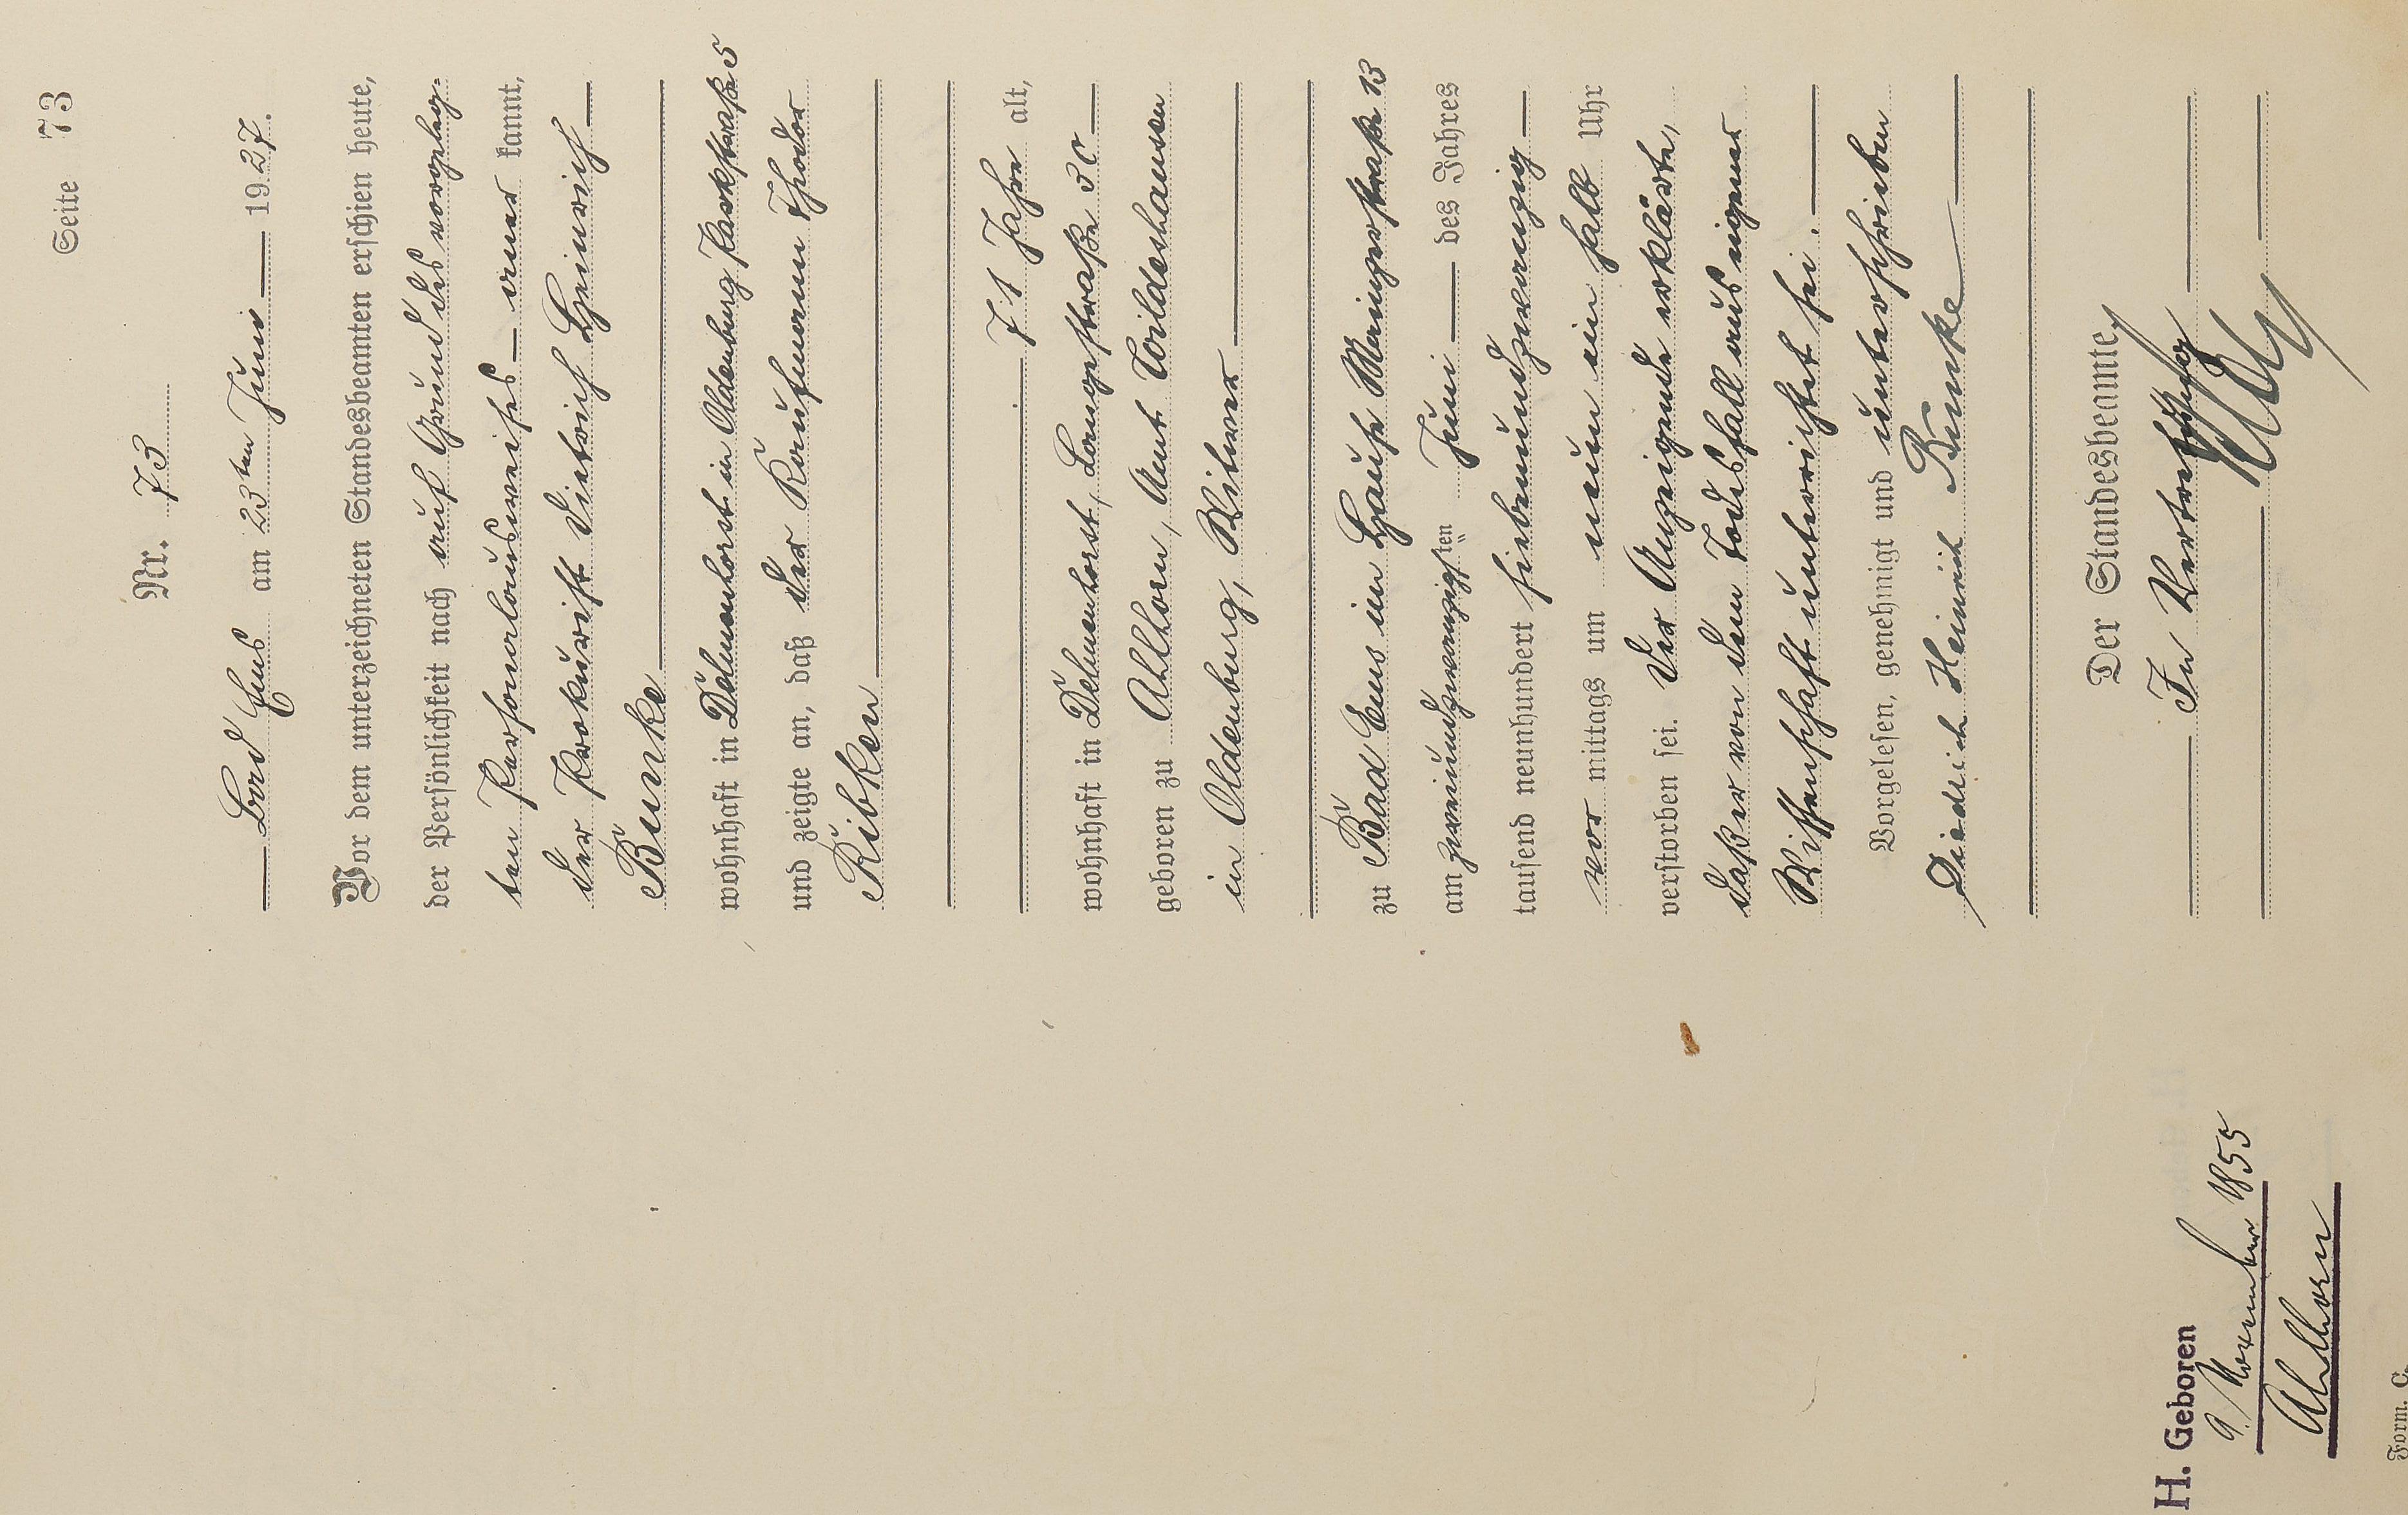 Seite 73
Nr. 73
Bad Ems am 23ten Juni 1927.
Vor dem unterzeichneten Standesbeamten erschien heute,
der Persönlichkeit nach auf Grund des vorgeleg-
ten Personalausweises anerkannt,
der Prokurist Dietrich Heinrich
Bünke
wohnhaft in Delmenhorst in Oldenburg Parkstraße 5
und zeigte an, daß der Kaufmann Theodor
Ribken
71 Jahre alt,
wohnhaft in Delmenhorst, Langestraße 30
geboren zu Ahlhorn, Amt Wildeshausen
in Oldenburg, Witwer
zu Bad Ems im Hause Mainzerstraße 13
am zweiundzwanzigsten Juni des Jahres
tausend neunhundert siebenundzwanzig
vor mittags um neun ein halb Uhr
verstorben sei. Der Anzeigende erklärte,
daß er von dem Todesfall aus eigener
Wissenschaft unterrichtet sei.
Vorgelesen, genehmigt und unterschrieben
Diedrich Heinrich Bunke
Der Standesbeamte
In Vertretung
H. Geboren
9. November 1855
Ahlhorn
Form. C.